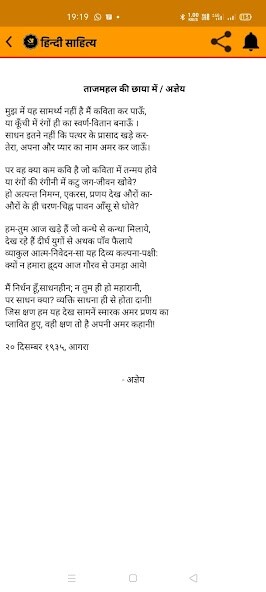 19:19
1.00 KB/s
हिन्दी साहित्य
ताजमहल की छाया में / अज्ञेय
मुझ में यह सामर्थ्य नहीं है मैं कविता कर पाऊँ,
या कूँची में रंगों ही का स्वर्ण-वितान बनाऊँ ।
साधन इतने नहीं कि पत्थर के प्रासाद खड़े कर-
तेरा, अपना और प्यार का नाम अमर कर जाऊँ।
पर वह क्या कम कवि है जो कविता में तन्मय होवे
या रंगों की रंगीनी में कटु जग-जीवन खोवे?
हो अत्यन्त निमग्न, एकरस, प्रणय देख औरों का-
औरों के ही चरण-चिह्न पावन आँसू से धोवे?
हम-तुम आज खड़े हैं जो कन्धे से कन्धा मिलाये,
देख रहे हैं दीर्घ युगों से अथक पाँव फैलाये
व्याकुल आत्म-निवेदन-सा यह दिव्य कल्पना-पक्षी:
क्यों न हमारा ह्रदय आज गौरव से उमड़ा आये!
मैं निर्धन हूँ,साधनहीन; न तुम ही हो महारानी,
पर साधन क्या? व्यक्ति साधना ही से होता दानी!
जिस क्षण हम यह देख सामनें स्मारक अमर प्रणय का
प्लावित हुए, वही क्षण तो है अपनी अमर कहानी!
२० दिसम्बर १९३५, आगरा
- अज्ञेय